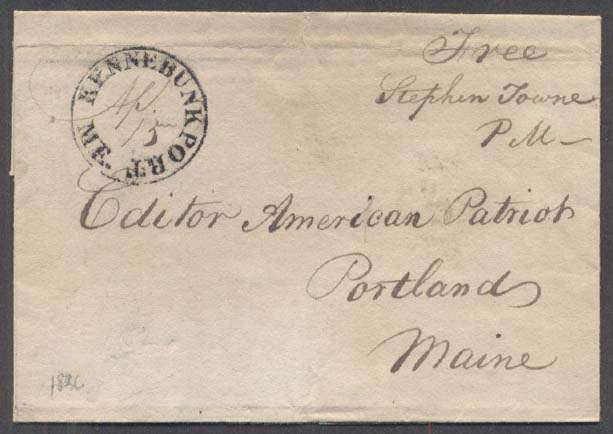 KENNEBUNK PORT ME.
Ap. 15
Free
Stephen Towne
P M
Editor American Patriot
Portland
Maine